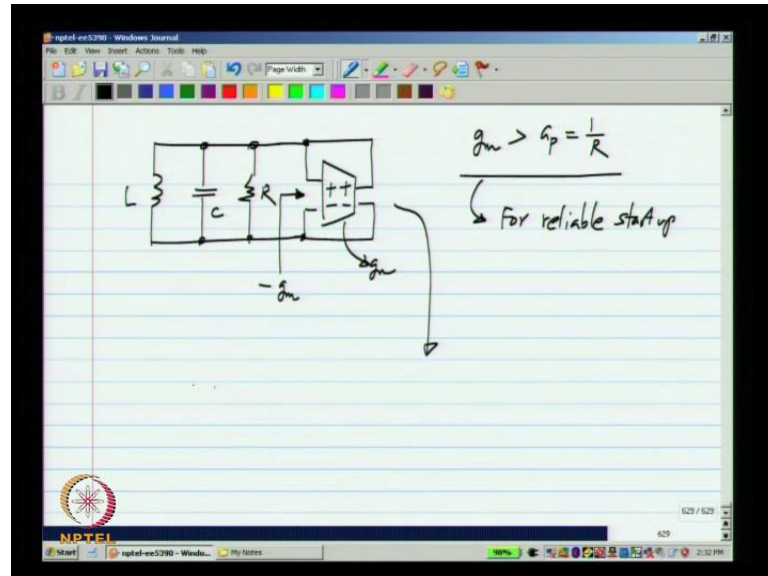 nptel-ee5390 - Windows Journal
File Edit View Insert Actions Tools Help
Page Width
B I
L
C
R
++
--
gm
- gm
gm > Gp = 1/R
For reliable start up
629 / 629
629
NPTEL
Start
nptel-ee5390 - Windo...
My Notes
98%
2:32 PM